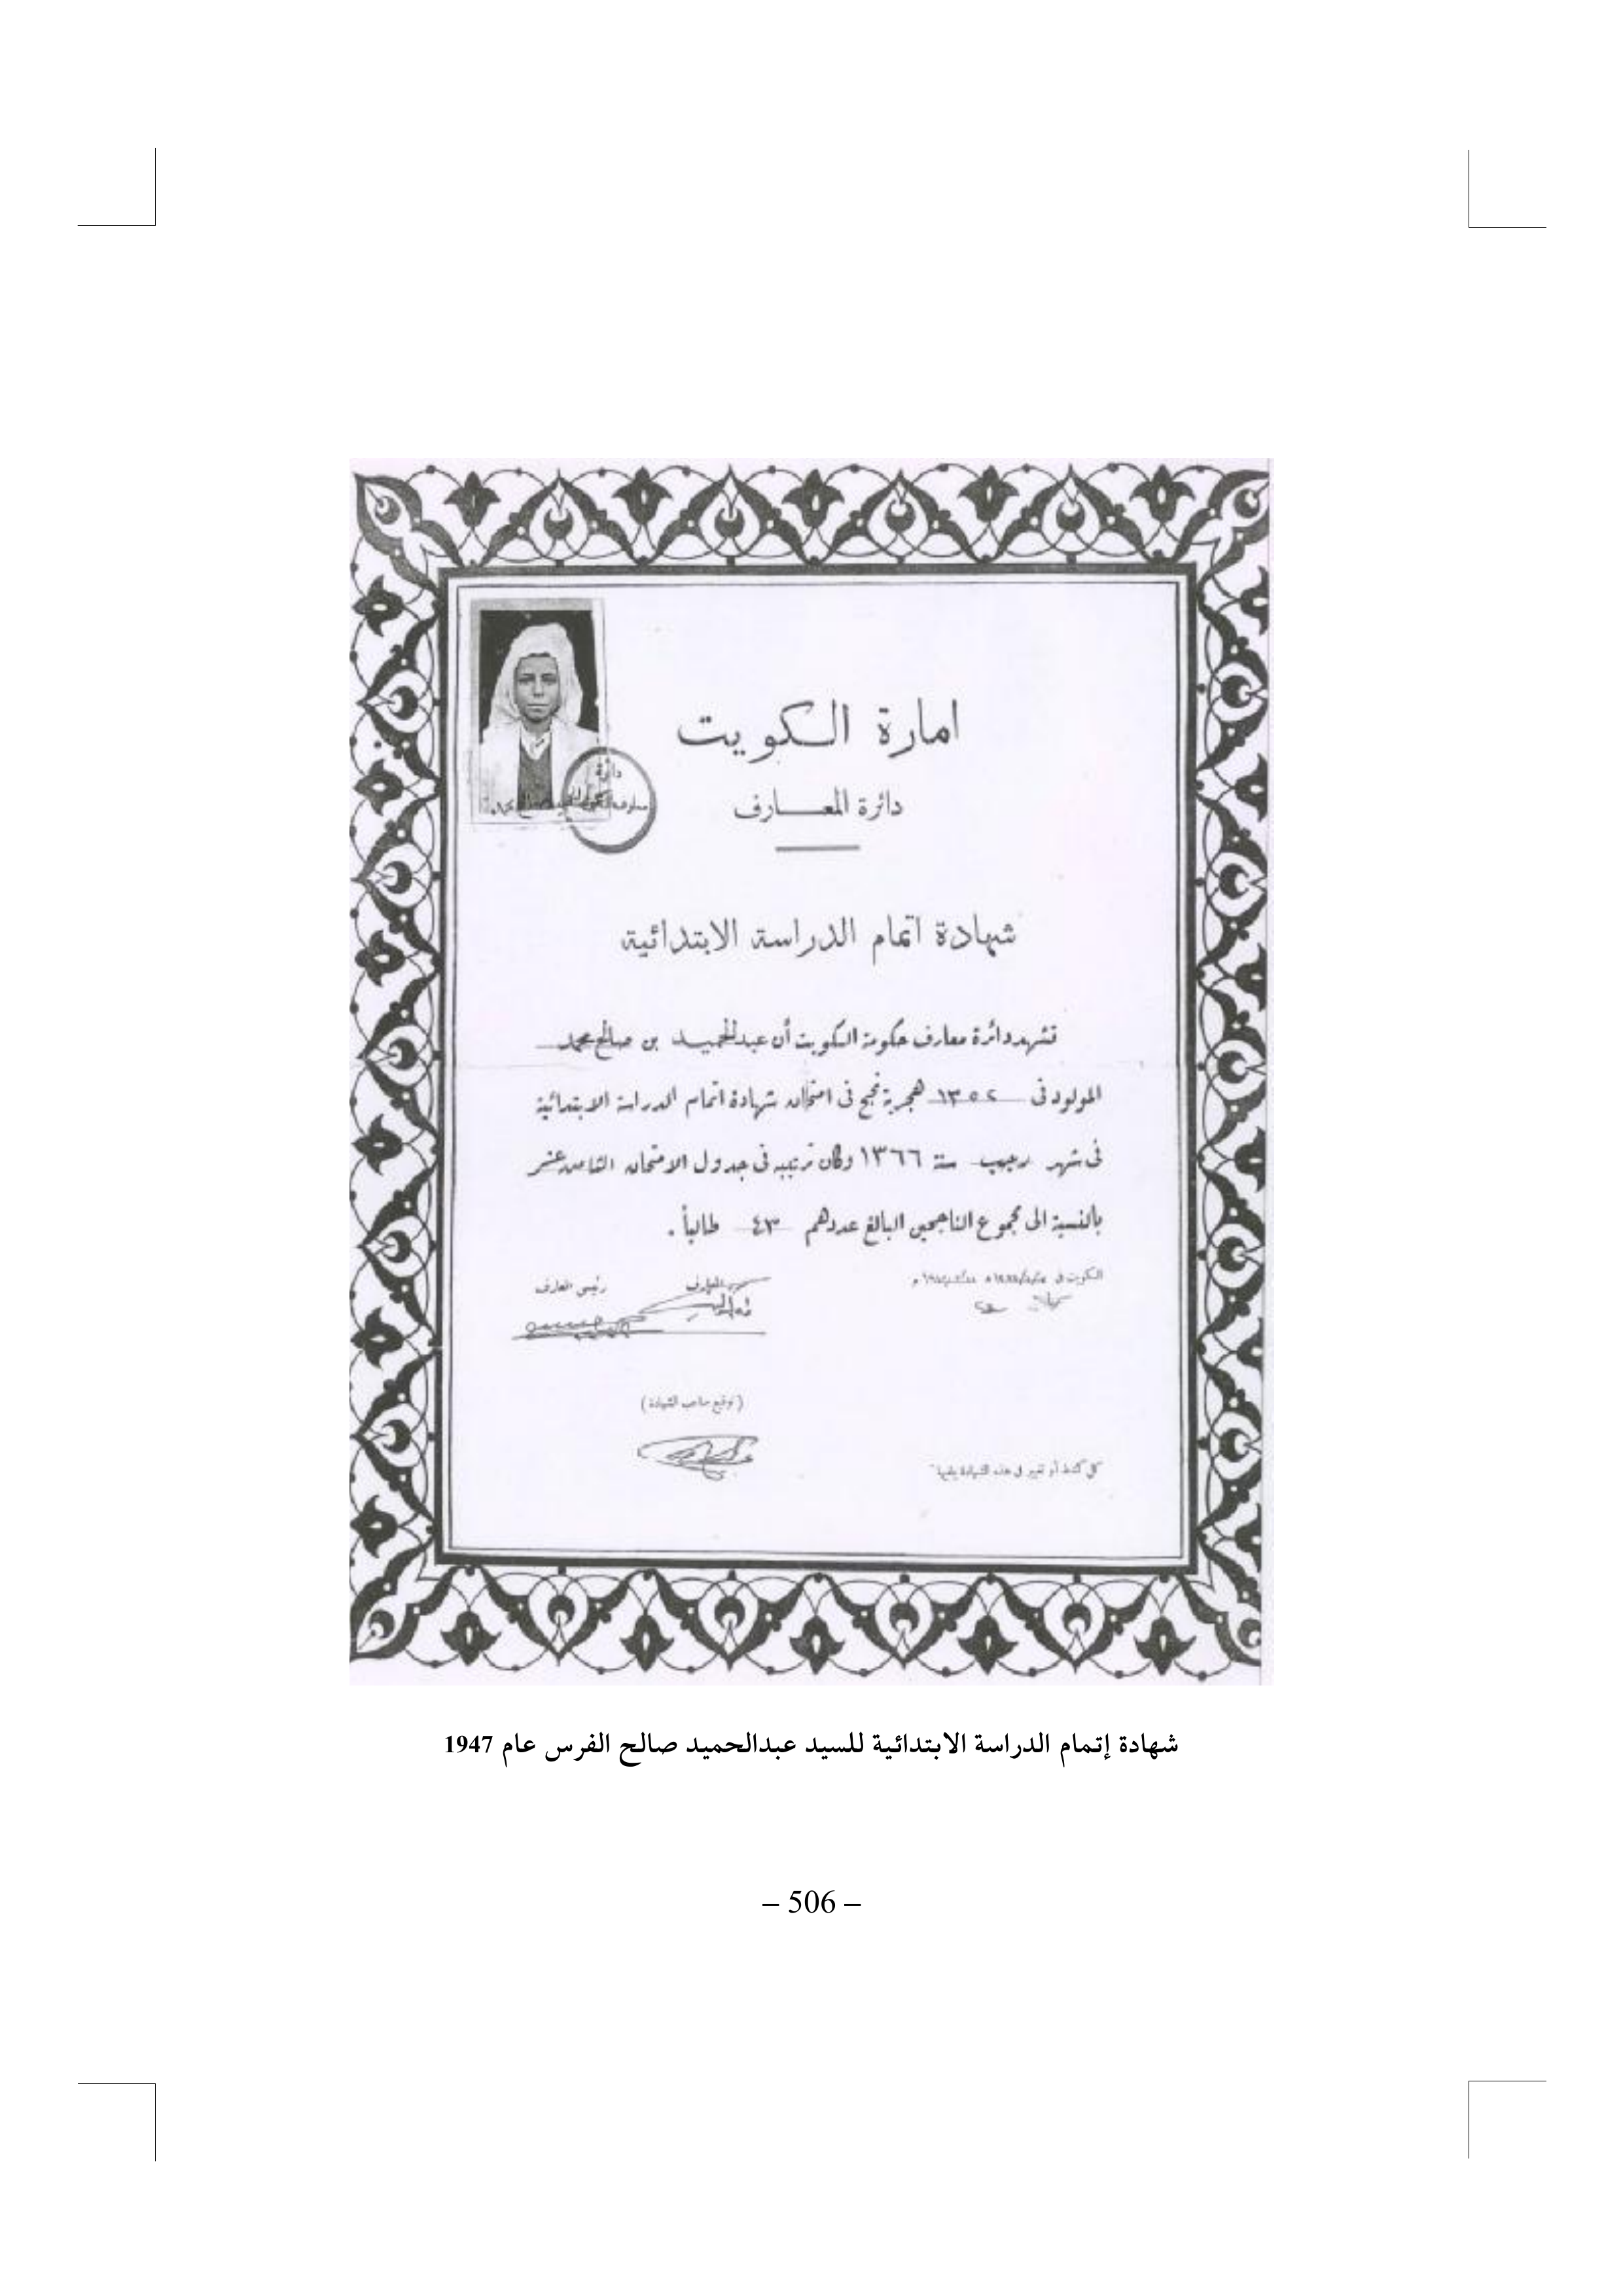 امارة الكويت
دائرة المعارف
شهادة اتمام الدراسة الابتدائية
تشهد دائرة معارف حكومة الكويت أن عبدالحميد بن صالح محمد
المولود فى ١٣٥٢ هجرية نجح فى امتحان شهادة اتمام الدراسة الابتدائية
فى شهر رجب سنة ١٣٦٦ وكان ترتيبه فى جدول الامتحان الثامن عشر
بالنسبة الى مجموع الناجحين البالغ عددهم ٤٣ طالباً .
الكويت فى
المعارف
رئيس المعارف
(توقيع صاحب الشهادة)
كل كشط أو تغيير فى هذه الشهادة يلغيها
دائرة
شهادة إتمام الدراسة الابتدائية للسيد عبدالحميد صالح الفرس عام 1947
– 506 –